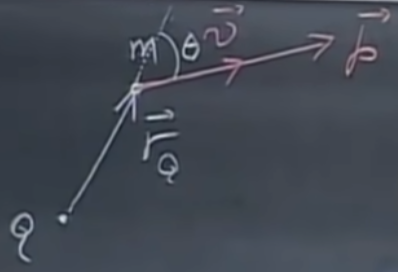 m θ v⃗ p⃗
r⃗_Q
Q